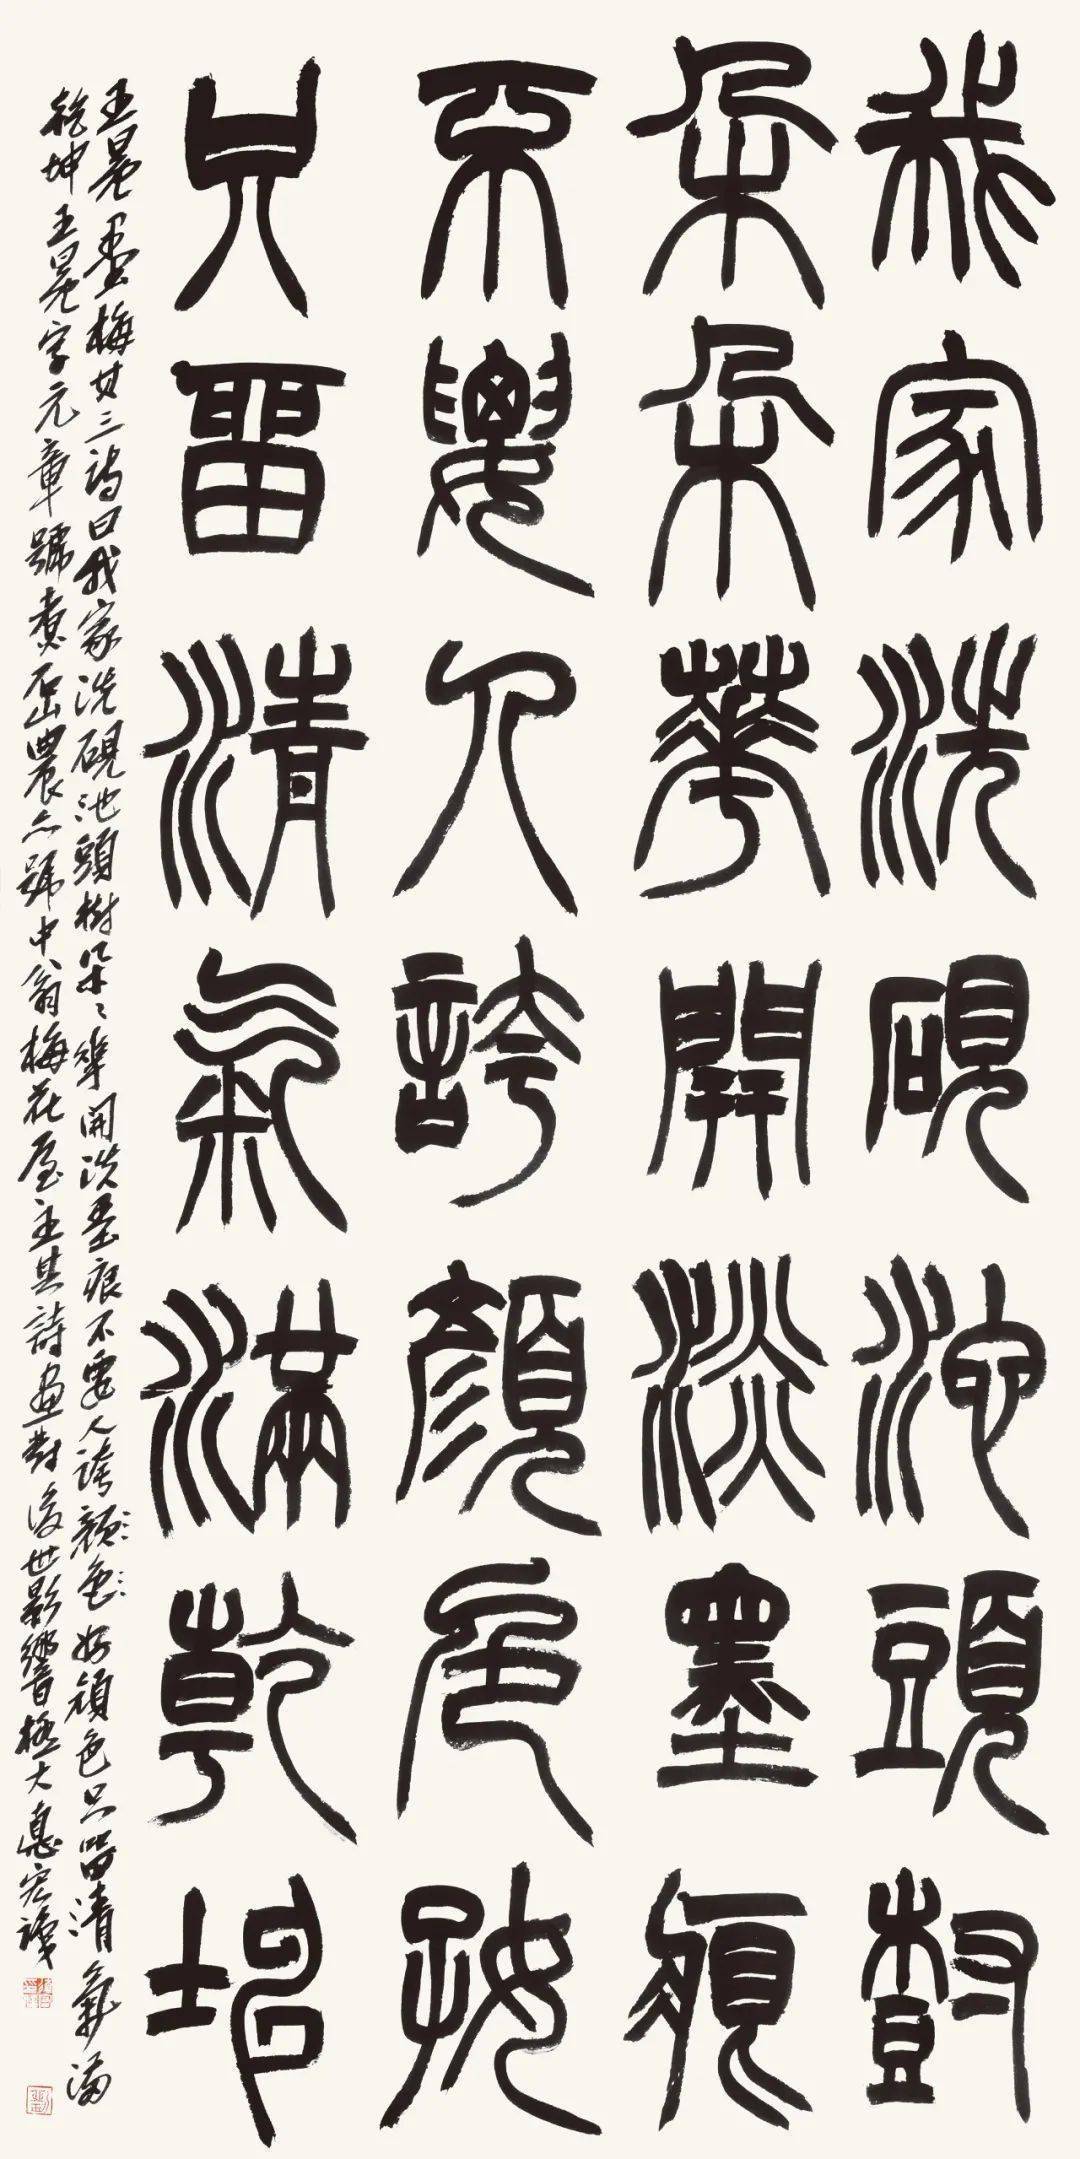 我家洗硯池頭樹
朵朵華開淡墨痕
不要人誇顏色好
只留清氣滿乾坤
王冕墨梅其三詩曰我家洗硯池頭樹朵々華開淡墨痕不要人誇顏色好顏色只留清氣滿
乾坤王冕字元章號煮石山農亦號中翁梅花屋主其詩畫對後世影響極大惠宏識